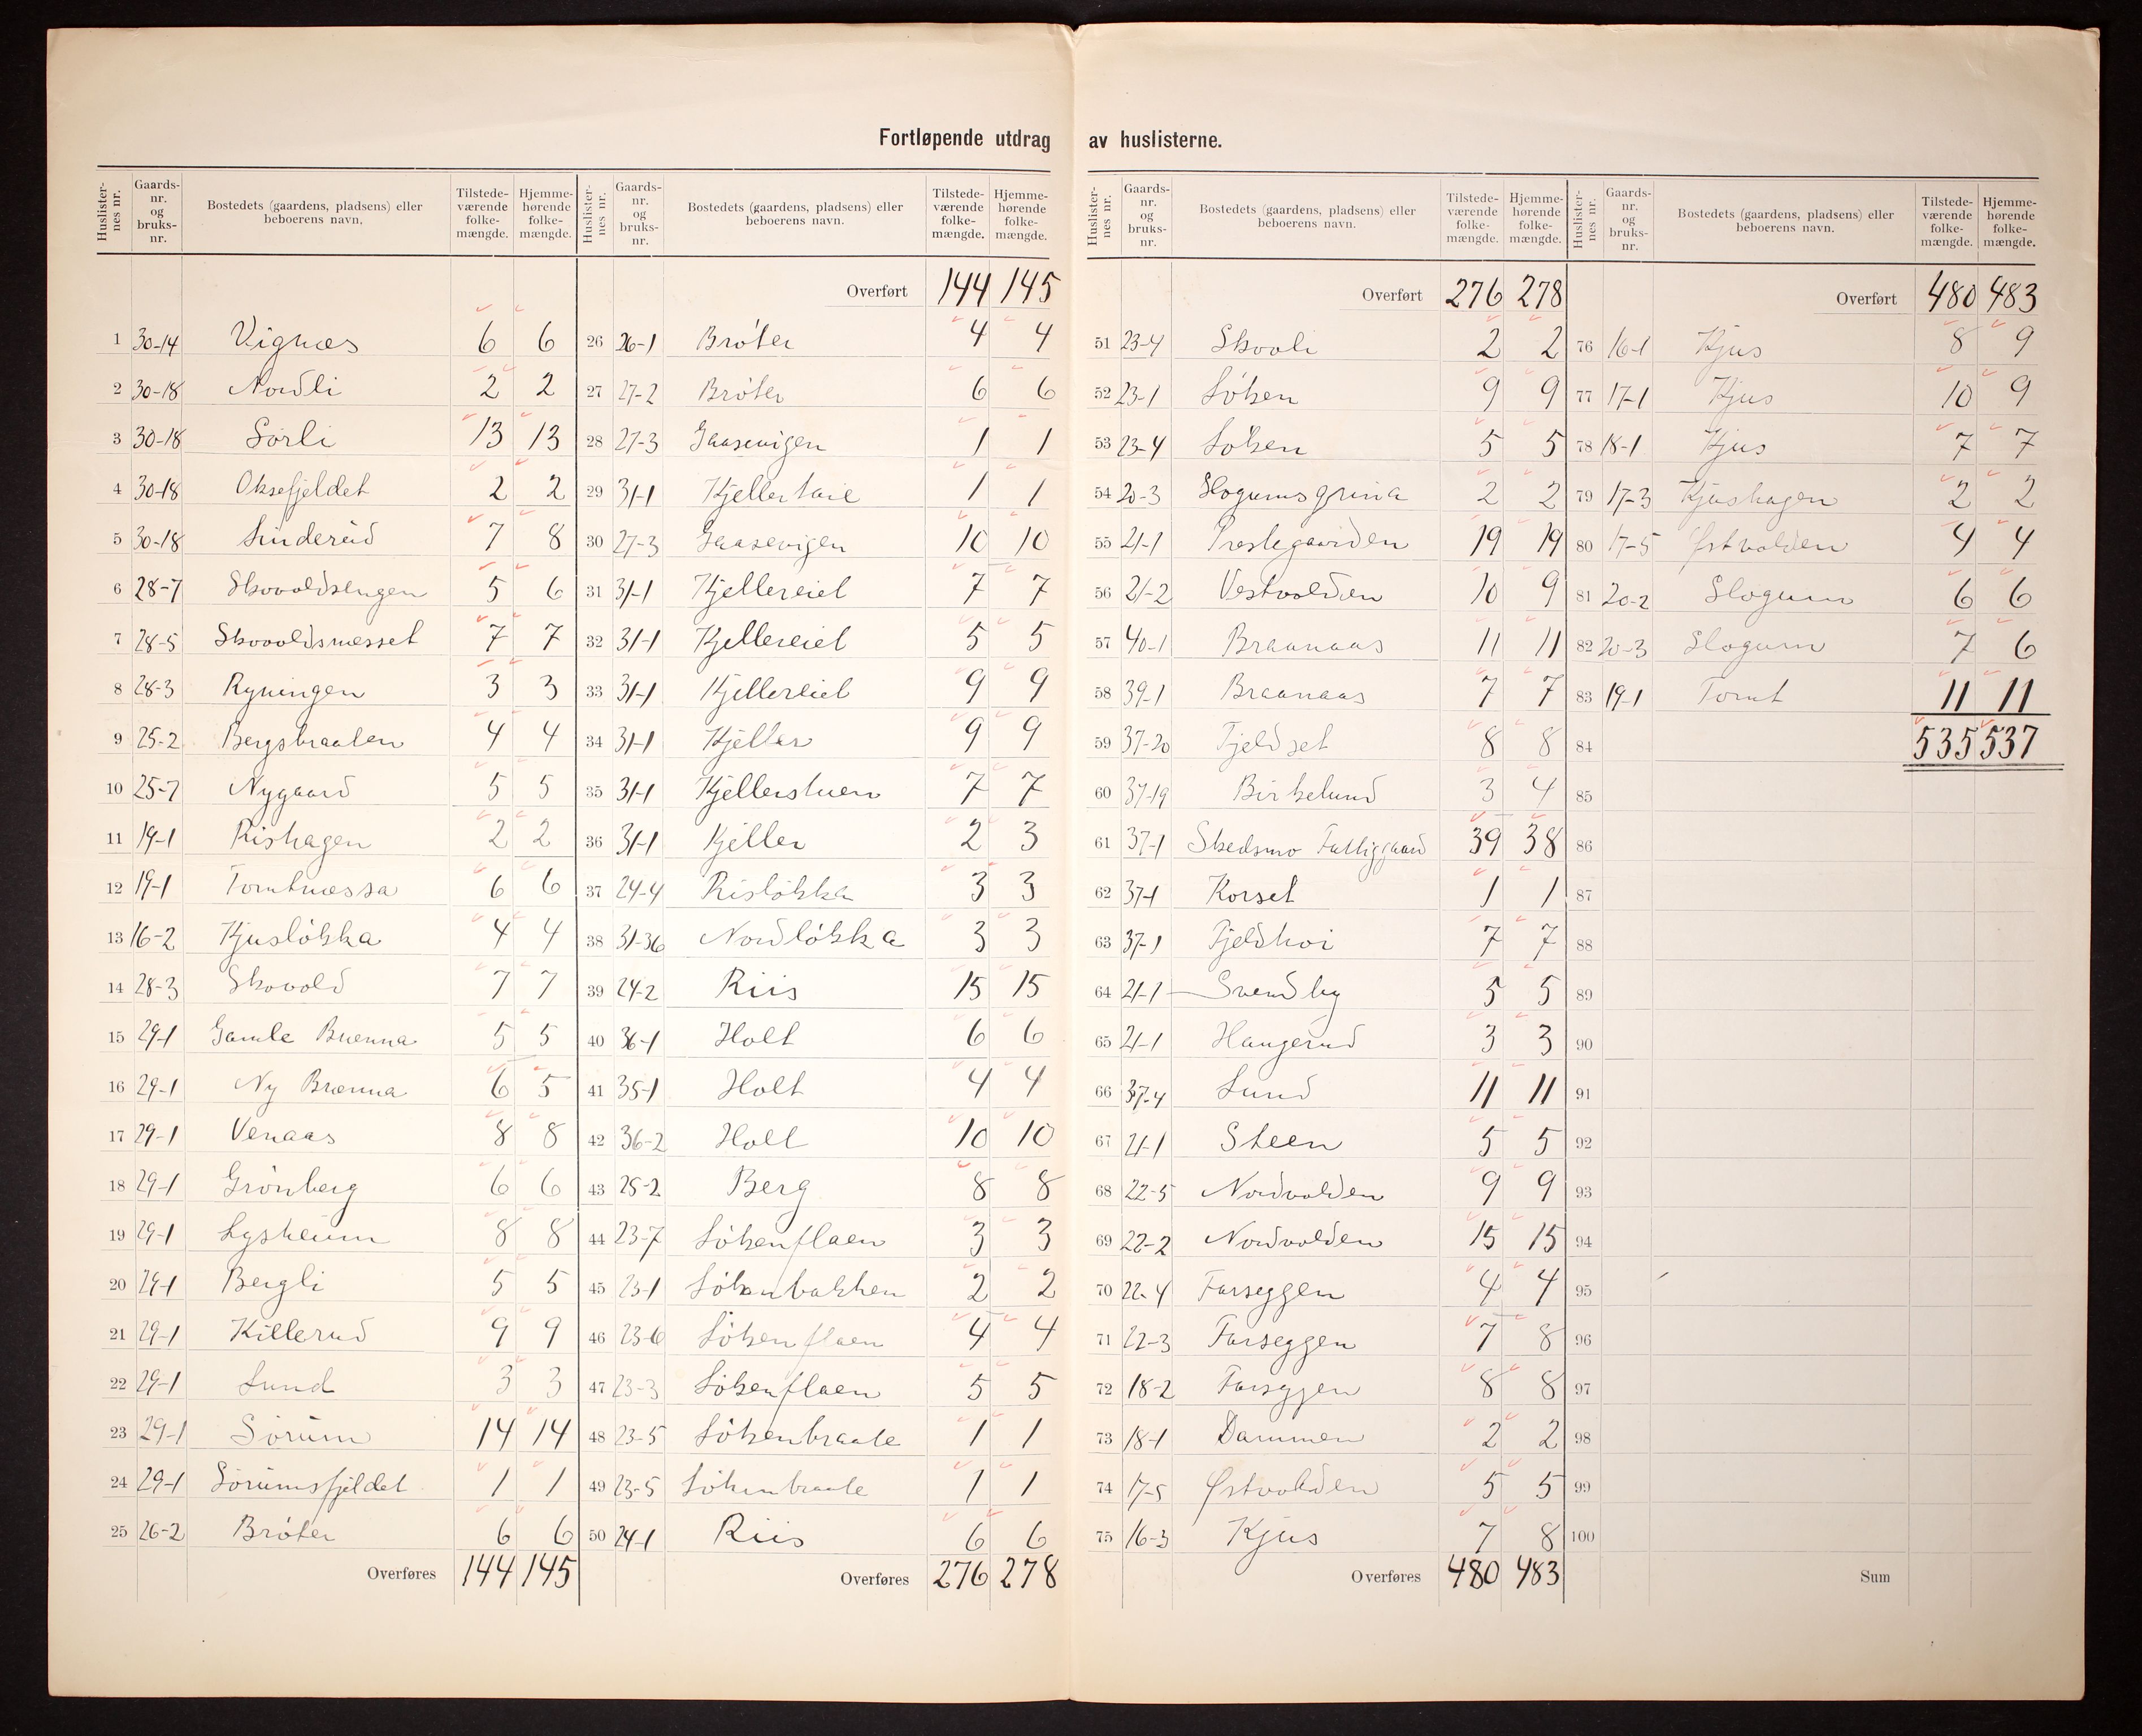 Fortløpende utdrag av huslisterne.
Huslisternes nr. Gaards-nr. og bruks-nr. Bostedets (gaardens, pladsens) eller beboerens navn. Tilstede-værende folke-mængde. Hjemme-hørende folke-mængde.
1 30-14 Vignæs 6 6
2 30-18 Nordli 2 2
3 30-18 Sörli 13 13
4 30-18 Oksefjeldet 2 2
5 30-18 Linderud 7 8
6 28-7 Skovoldsengen 5 6
7 28-5 Skovoldsnesset 7 7
8 28-3 Ryningen 3 3
9 25-2 Bergsbraaten 4 4
10 25-7 Nygaard 5 5
11 19-1 Rishagen 2 2
12 19-1 Tomtnæssa 6 6
13 16-2 Kjusløkka 4 4
14 28-3 Skovold 7 7
15 29-1 Gamle Brenna 5 5
16 29-1 Ny Brænna 6 5
17 29-1 Venaas 8 8
18 29-1 Grönberg 6 6
19 29-1 Lysheim 8 8
20 29-1 Bergli 5 5
21 29-1 Killerud 9 9
22 29-1 Lund 3 3
23 29-1 Sörum 14 14
24 29-1 Sörumsfjeldet 1 1
25 26-2 Bröter 6 6
Overføres 144 145
Huslisternes nr. Gaards-nr. og bruks-nr. Bostedets (gaardens, pladsens) eller beboerens navn. Tilstede-værende folke-mængde. Hjemme-hørende folke-mængde.
Overført 144 145
26 26-1 Bröter 4 4
27 27-2 Bröter 6 6
28 27-3 Gaasevigen 1 1
29 31-1 Kjellerhaie 1 1
30 27-3 Gaasevigen 10 10
31 31-1 Kjellereiet 7 7
32 31-1 Kjellereiet 5 5
33 31-1 Kjellereiet 9 9
34 31-1 Kjeller 9 9
35 31-1 Kjellerstuen 7 7
36 31-1 Kjeller 2 3
37 24-4 Risløkka 3 3
38 31-36 Nordløkka 3 3
39 24-2 Riis 15 15
40 36-1 Holt 6 6
41 35-1 Holt 4 4
42 36-2 Holt 10 10
43 25-2 Berg 8 8
44 23-7 Lökenflaen 3 3
45 23-1 Lökenbakken 2 2
46 23-6 Lökenflaen 4 4
47 23-3 Lökenflaen 5 5
48 23-5 Lökenbraate 1 1
49 23-5 Lökenbraate 1 1
50 24-1 Riis 6 6
Overføres 276 278
Huslisternes nr. Gaards-nr. og bruks-nr. Bostedets (gaardens, pladsens) eller beboerens navn. Tilstede-værende folke-mængde. Hjemme-hørende folke-mængde.
Overført 276 278
51 23-4 Skovli 2 2
52 23-1 Löken 9 9
53 23-4 Löken 5 5
54 20-3 Slogumsgrina 2 2
55 21-1 Prestegaarden 19 19
56 21-2 Vestvolden 10 9
57 40-1 Braanaas 11 11
58 39-1 Braanaas 7 7
59 37-20 Fjeldset 8 8
60 37-19 Birkelund 3 4
61 37-1 Skedsmo Fattiggaard 39 38
62 37-1 Korset 1 1
63 37-1 Fjeldhoi 7 7
64 21-1 Svendby 5 5
65 21-1 Haugerud 3 3
66 37-4 Lund 11 11
67 21-1 Steen 5 5
68 22-5 Nordvolden 9 9
69 22-2 Nordvolden 15 15
70 22-4 Farseggen 4 4
71 22-3 Farseggen 7 8
72 18-2 Farseggen 8 8
73 18-1 Dammen 2 2
74 17-5 Østvolden 5 5
75 16-3 Kjus 7 8
Overføres 480 483
Huslisternes nr. Gaards-nr. og bruks-nr. Bostedets (gaardens, pladsens) eller beboerens navn. Tilstede-værende folke-mængde. Hjemme-hørende folke-mængde.
Overført 480 483
76 16-1 Kjus 8 9
77 17-1 Kjus 10 9
78 18-1 Kjus 7 7
79 17-3 Kjushagen 2 2
80 17-5 Østvolden 4 4
81 20-2 Slogum 6 6
82 20-3 Slogum 7 6
83 19-1 Tomt 11 11
84 535 537
85
86
87
88
89
90
91
92
93
94
95
96
97
98
99
100
Sum